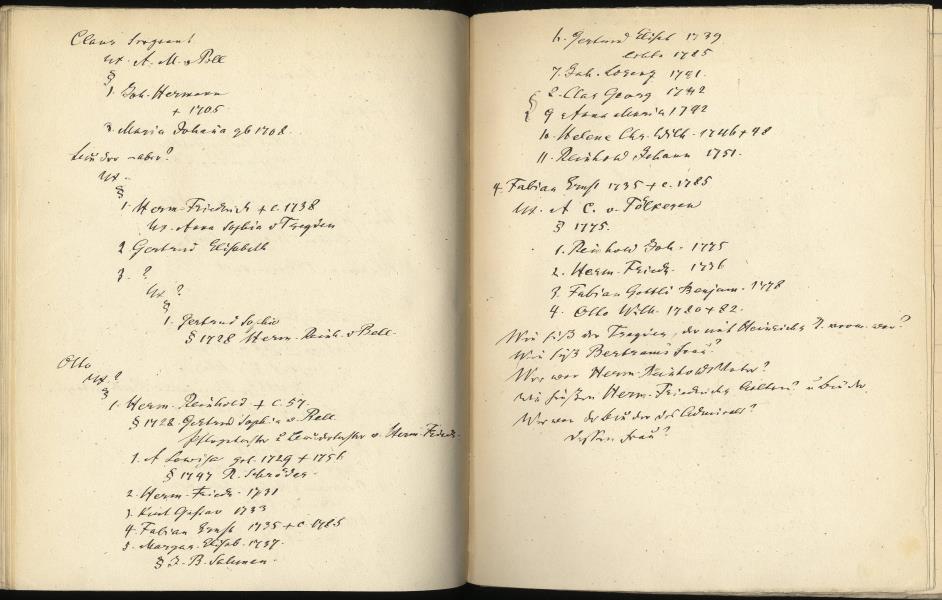 Claus Sergeant
ux. A. M. v Bell
§
1. Joh. Hermann
+ 1705
3. Maria Johana gb 1708.
Bruder - aber?
Ux -
§
1. Herm-Friedrich + c. 1738
Ux. Anna Sophia v Treyden
2 Gertrud Elisabeth
3. ?
Ux ?
§
1. Gertrud Sophie
§ 1728 Herm. Reinh. v Bell.
Otto
ux. ?
§
1. Herm. Reinhold + c. 57.
§ 1728. Gertrud Sophia v. Bell
Pflegetochter & Bruderstochter v. Herm. Friedr.
1. A Lowisa geb. 1729 + 1756
§ 1747 R. Schröder.
2. Herm. Friedr. 1731
3. Kurt Gustav 1733
4. Fabian Ernst 1735 + c. 1785
5. Margar. Elisab. 1737.
§ J. B. Salmen.
6. Gertrud Elisab 1739
lebte 1785
7. Joh. Lorenz 1741.
8. Clas Georg 1742
9 Anna Maria 1742
10. Helene Chr. Wilh. 1746 + 48
11. Reinhold Johann 1751.
4. Fabian Ernst 1735 + c. 1785
Ux. A C. v. Tölkersn
§ 1775.
1. Reinhold Joh. 1775
2. Herm. Friedr. 1776
3. Fabian Gottli Benjam. 1778
4. Otto Wilh. 1780 + 82.
Wie hieß der Treyden, der mit Heinrichs T. verm. war?
Wie hieß Bertrams Frau?
Wer war Herm. Reinholds Vater?
Wie hießen Herm-Friedrichs Eltern? u Bruder
Wer war der Bruder des Admirals?
dessen Frau?